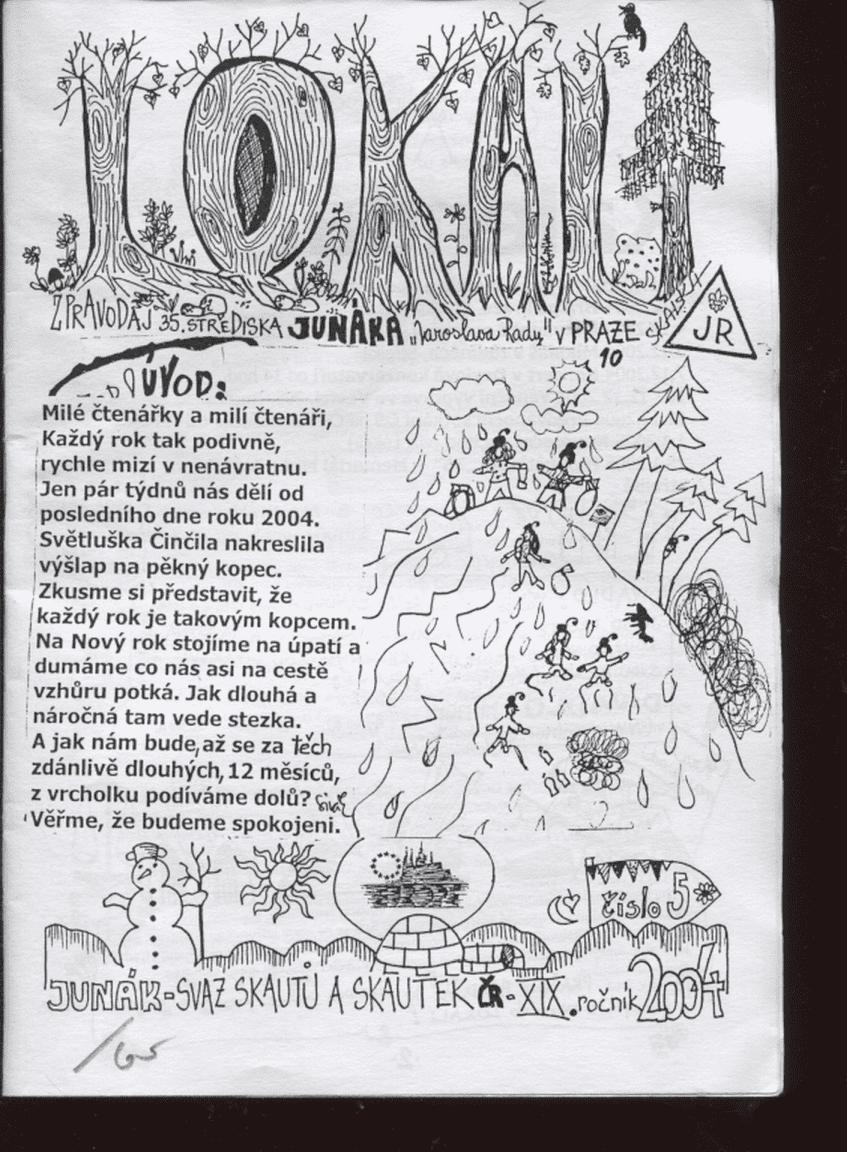 LOKÁL
ZPRAVODAJ 35. STŘEDISKA JUNÁKA „Jaroslava Rady" V PRAZE
10
JR
ÚVOD:
Milé čtenářky a milí čtenáři,
Každý rok tak podivně,
rychle mizí v nenávratnu.
Jen pár týdnů nás dělí od
posledního dne roku 2004.
Světluška Činčila nakreslila
výšlap na pěkný kopec.
Zkusme si představit, že
každý rok je takovým kopcem.
Na Nový rok stojíme na úpatí a
dumáme co nás asi na cestě
vzhůru potká. Jak dlouhá a
náročná tam vede stezka.
A jak nám bude, až se za těch
zdánlivě dlouhých, 12 měsíců,
z vrcholku podíváme dolů?
Věřme, že budeme spokojeni.
číslo 5
JUNÁK - SVAZ SKAUTŮ A SKAUTEK ČR - XIX. ročník 2004